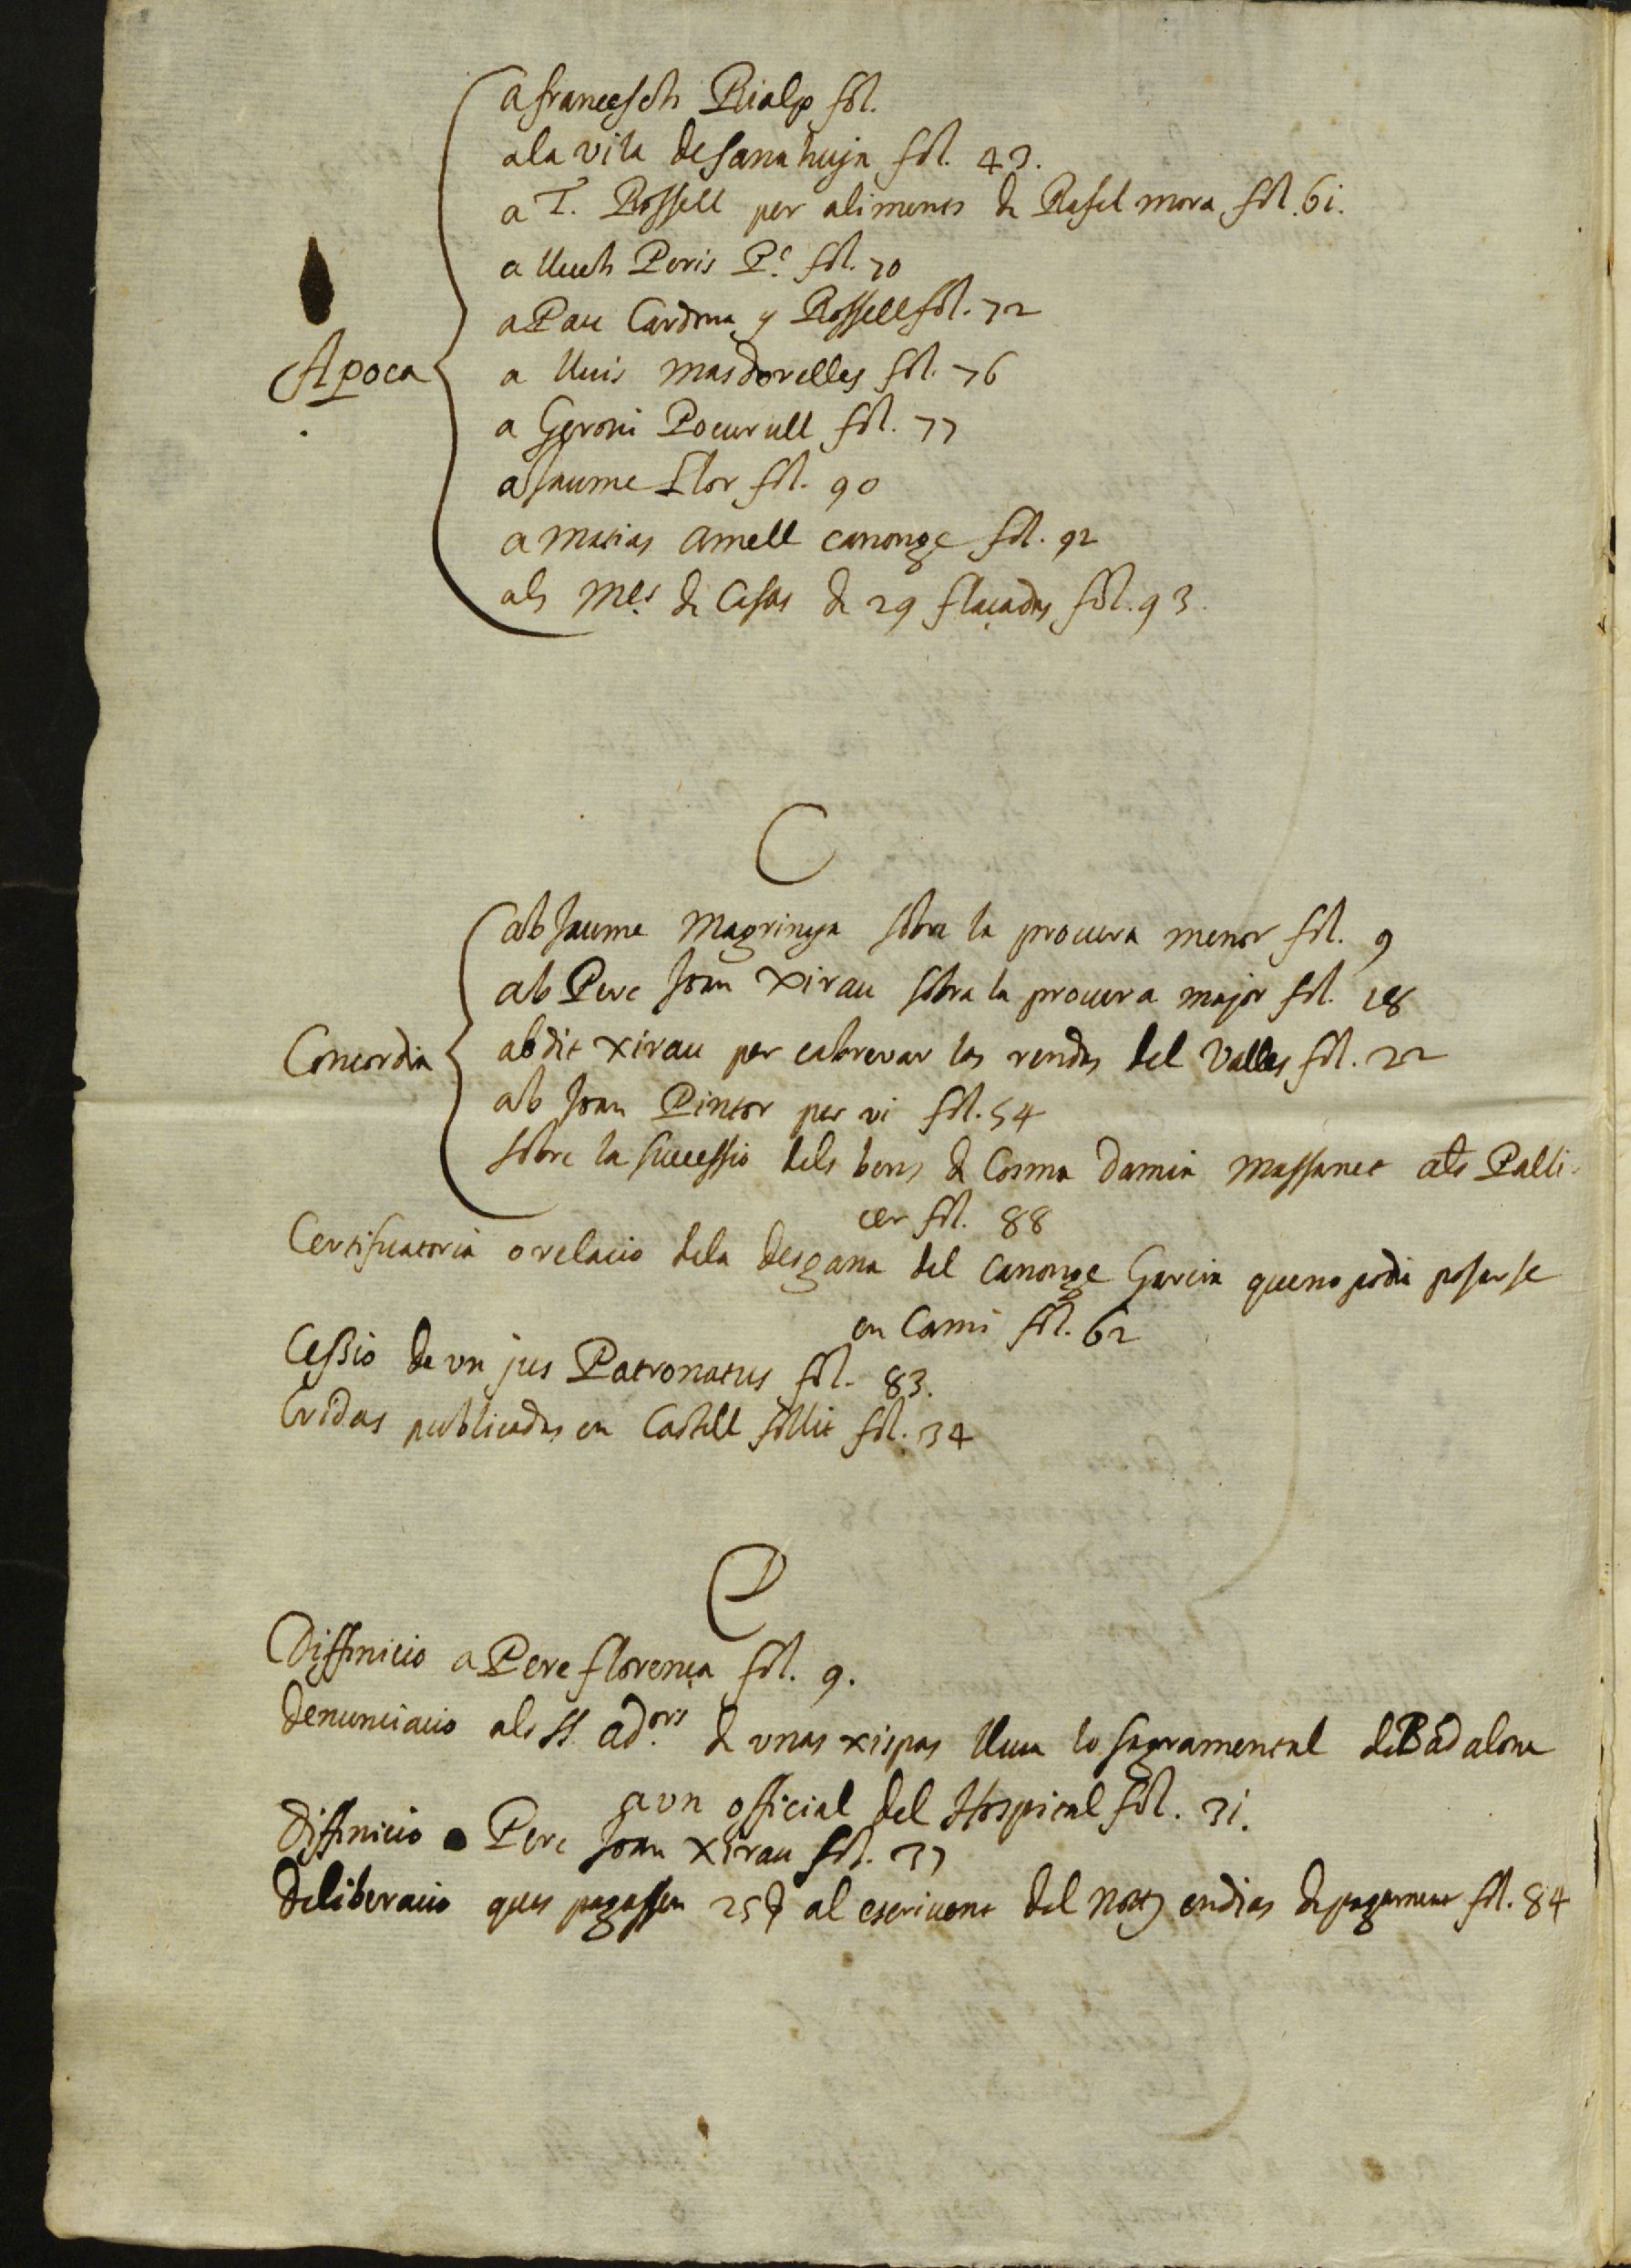 a francesch Rialp fol.
a la vila de sanahuja fol. 43.
a T. Rossell per aliments de Rafel mora fol. 61.
a lluch Peris P.e fol. 70
a Pau Cardona y Rossell fol. 72
Apoca
a lluis masdovelles fol. 76
a Geroni Pocurull fol. 77
a Jaume flor fol. 90
a Matias Amell canonge fol. 92
als Mes. de Casas de 29 flaçadas fol. 93.
C
ab Jaume Magrinya sobre la procura menor fol. 9
ab Pere Joan Xirau sobra la procura major fol. 18
Concordia
ab dit Xirau per cabrevar las rendas del Valles fol. 22
ab Joan Pintor per vi fol. 54
sobre la successio dels bens de Cosma Damia Massanet als Palli-
cer fol. 88
Certificatoria o relacio dela desgana del Canonge Garcia que no podia posarse
en Cami fol. 62
Cessio de vn jus Patronatus fol. 83.
Cridas publicadas en Castell follit fol. 34
D
Diffinicio a Pere florença fol. 9.
Denunciacio als SS. ad.ors de vnas xispas lleva lo sagramental de Badalona
a vn official del Hospital fol. 31.
Diffinicio a Pere Joan Xirau fol. 37
Deliberacio ques pagassen 25 al escrivent del Nott en dias de pagament fol. 84